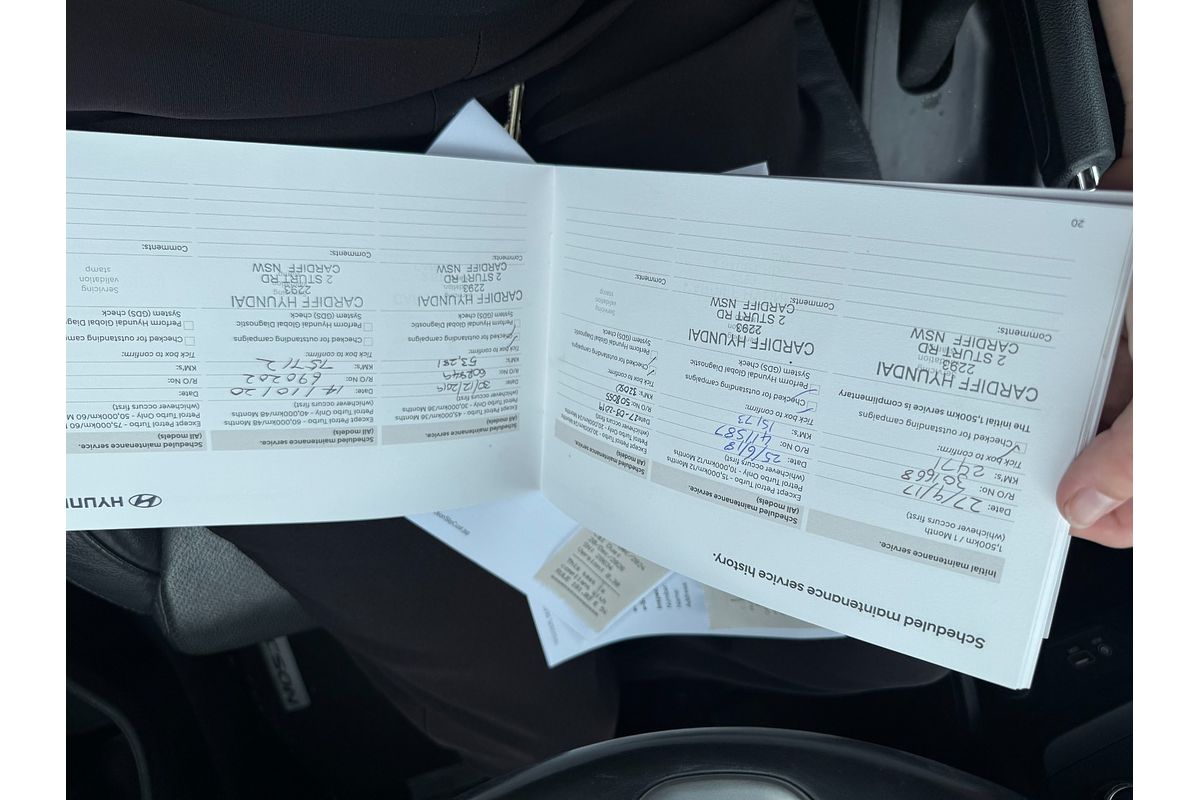 Scheduled maintenance service history.
Initial maintenance service.
1,500km / 1 Month
(whichever occurs first)
Date: 27/4/17
R/O No: 301668
KM's: 2471
Tick box to confirm:
Checked for outstanding campaigns
The initial 1,500km service is complimentary
CARDIFF HYUNDAI
2293
2 STURT RD
CARDIFF NSW
Comments:
20
Scheduled maintenance service.
(All models)
Except Petrol Turbo - 15,000km/12 Months
Petrol Turbo Only - 10,000km/12 Months
(whichever occurs first)
Date: 25/6/18
R/O No: 411587
KM's: 15173
Tick box to confirm:
Checked for outstanding campaigns
Perform Hyundai Global Diagnostic
System (GDS) check
CARDIFF HYUNDAI
2293
2 STURT RD
CARDIFF NSW
Comments:
Scheduled maintenance service.
(All models)
Except Petrol Turbo - 30,000km/24
Petrol Turbo Only - 20,000km/24
(whichever occurs first)
Date: 27-05-2019
R/O No: 508065
KM's:
Tick box to confirm:
Checked for outstanding campaigns
Perform Hyundai Global Diagnostic
System (GDS) check
Servicing
validation
stamp
Comments:
Scheduled maintenance service.
(All models)
Except Petrol Turbo - 45,000km/36 Months
Petrol Turbo Only - 30,000km/36 Months
(whichever occurs first)
Date: 30/12/2019
R/O No:
KM's: 53,251
Tick box to confirm:
Checked for outstanding campaigns
Perform Hyundai Global Diagnostic
System (GDS) check
CARDIFF HYUNDAI
2293
2 STURT RD
CARDIFF NSW
Comments:
Scheduled maintenance service.
(All models)
Except Petrol Turbo - 60,000km/48 Months
Petrol Turbo Only - 40,000km/48 Months
(whichever occurs first)
Date: 14/10/20
R/O No: 690202
KM's: 75712
Tick box to confirm:
Checked for outstanding campaigns
Perform Hyundai Global Diagnostic
System (GDS) check
CARDIFF HYUNDAI
2293
2 STURT RD
CARDIFF NSW
Comments:
Scheduled maintenance service.
(All models)
Except Petrol Turbo - 75,000km/60
(whichever occurs first)
Date:
R/O No:
KM's:
Tick box to confirm:
Checked for outstanding
Perform Hyundai Global Diagnostic
System (GDS) check
Servicing
validation
stamp
Comments: